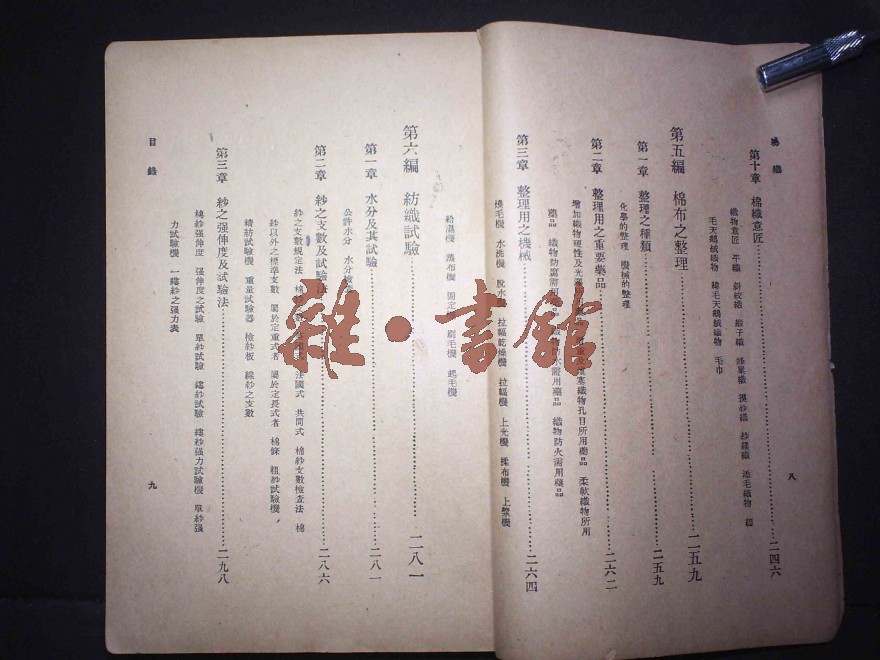 紡織
第十章 棉織意匠……二四六
織物意匠 平織 斜紋織 緞子織 蜂巢織 模紗織 紗羅織 添毛織物 經
毛天鵝絨織物 緯毛天鵝絨織物 毛巾
第五編 棉布之整理……二五九
第一章 整理之種類……二五九
化學的整理 機械的整理
第二章 整理用之重要藥品……二六二
增加織物硬性及光澤 織物孔目所用藥品 柔軟織物所用
藥品 織物防腐需用藥品 織物防火需用藥品
第三章 整理用之機械……二六四
燒毛機 水洗機 脫水機 拉幅乾燥機 拉幅機 上光機 揉布機 上漿機
八
給濕機 蒸布機 刷毛機 起毛機
第六編 紡織試驗……二八一
第一章 水分及其試驗……二八一
公許水分 水分檢
第二章 紗之支數及試驗法……二八六
紗之支數規定法 法國式 共同式 棉紗支數檢查法 棉
紗以外之標準支數 屬於定重式者 屬於定長式者 棉條 粗紗試驗機
精紡試驗機 重量試驗器 檢紗板 線紗之支數
第三章 紗之强伸度及試驗法……二九八
棉紗强伸度 强伸度之試驗 單紗試驗 縷紗試驗 縷紗强力試驗機 單紗强
力試驗機 一縷紗之强力表
目錄
九
雜·書館